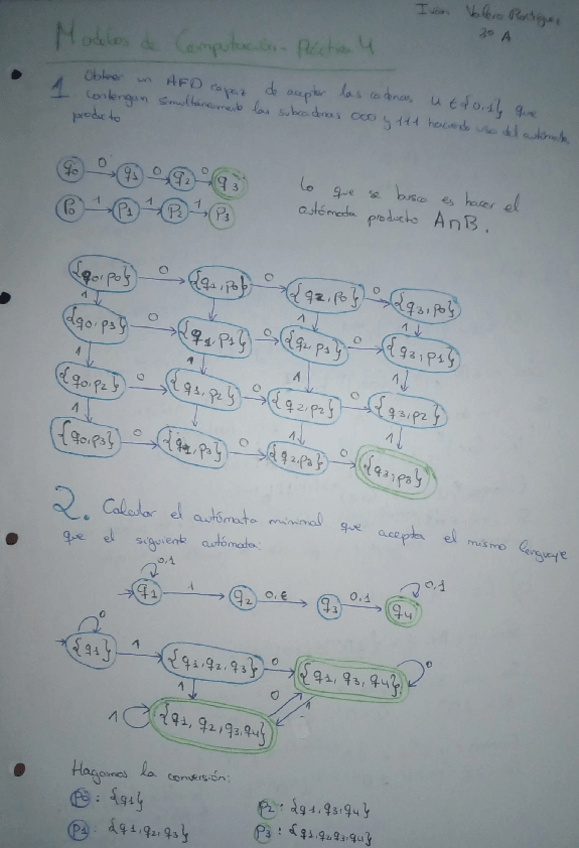 Iván Valero Rodríguez
3º A
Modelos de Computación - Práctica 4
1 Obtener un AFD capaz de aceptar las cadenas u ∈ {0,1} que
contengan simultáneamente las subcadenas 000 y 111 haciendo uso del autómata
producto
q0 0 q1 0 q2 0 q3
P0 1 P1 1 P2 1 P3
Lo que se busca es hacer el
autómata producto A∩B.
{q0,p0} 0 {q1,p0} 0 {q2,p0} 0 {q3,p0}
1 1 1
{q0,p3} 0 {q1,p1} 0 {q2,p1} 0 {q3,p1}
1 1 1 1
{q0,p2} 0 {q1,p2} 0 {q2,p2} 0 {q3,p2}
1 1 1
{q0,p3} 0 {q1,p3} 0 {q2,p3} 0 {q3,p3}
2. Calcular el autómata minimal que acepta el mismo lenguaje
que el siguiente autómata:
0,1 0,1
q1 1 q2 0,ε q3 0,1 q4
0
{q1} 1 {q1,q2,q3} 0 {q1,q3,q4} 0
1 0 1
1 {q1,q2,q3,q4}
Hagamos la conversión:
p0: {q1} p2: {q1,q3,q4}
p1: {q1,q2,q3} p3: {q1,q2,q3,q4}